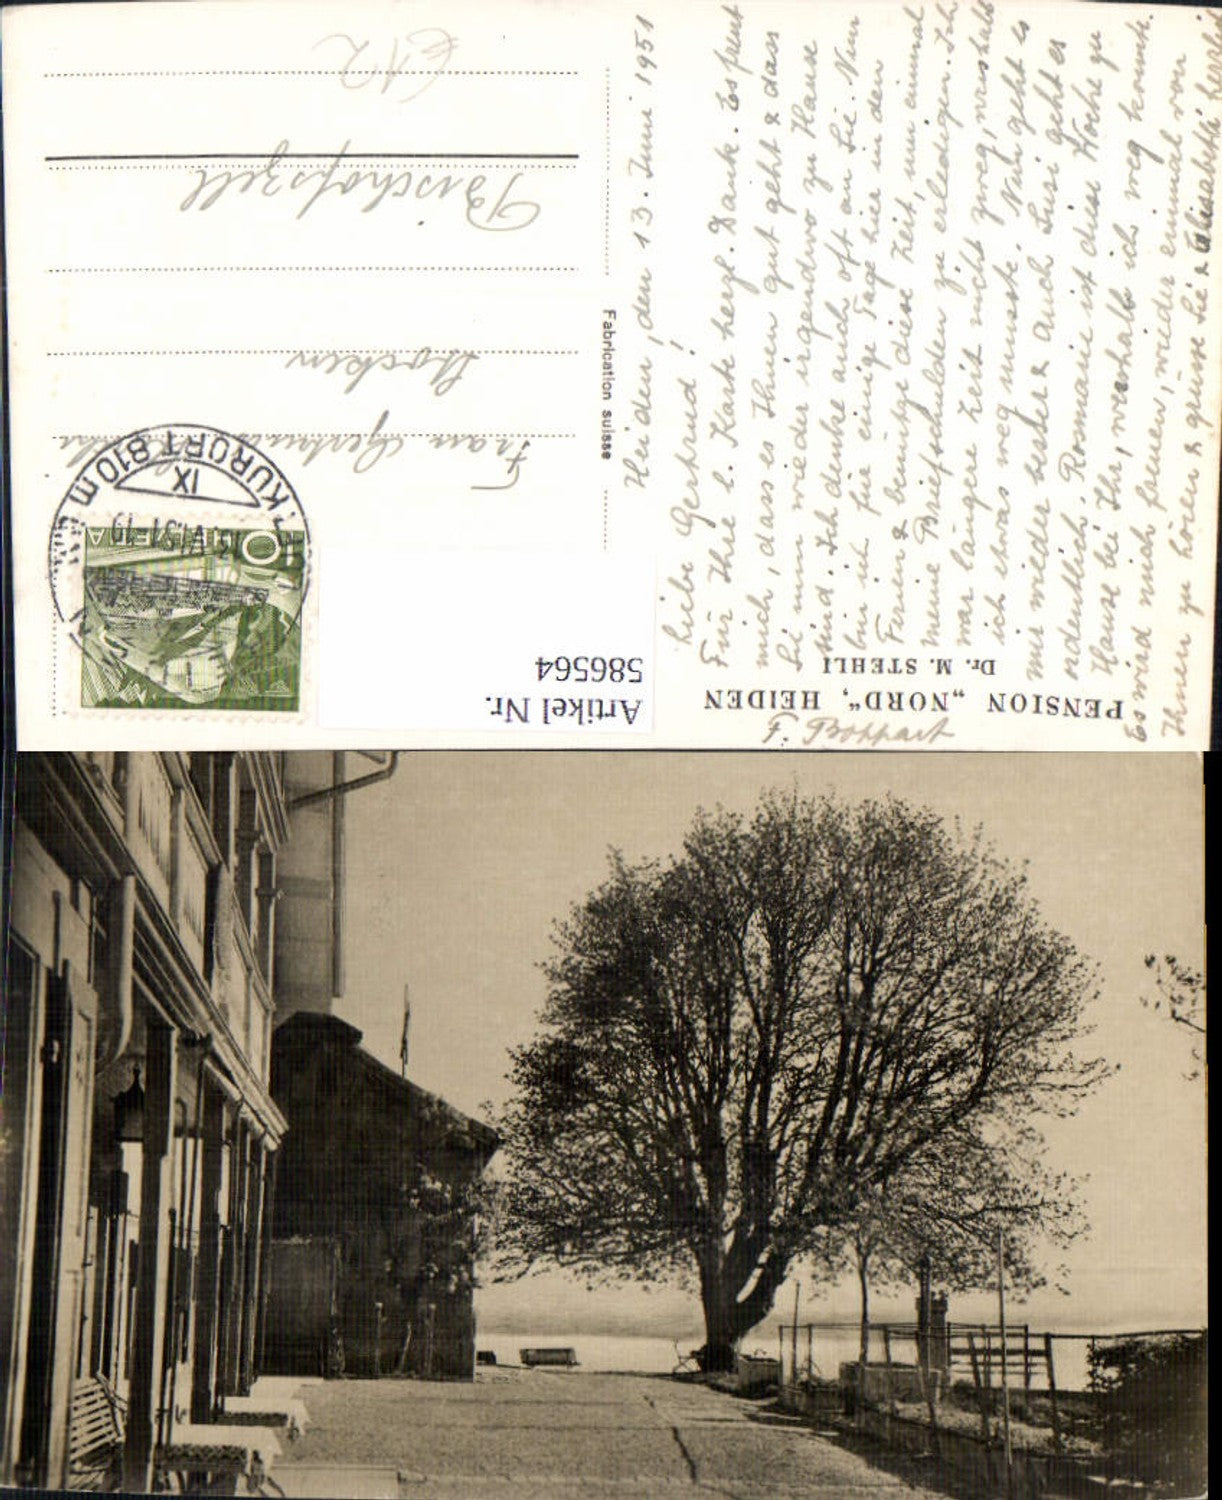 Heiden, den 13. Juni 1951
Liebe Gertrud!
Für Ihre l. Karte herzl. Dank. Es freut
mich, dass es Ihnen gut geht & dass
Sie nun wieder irgendwo zu Hause
sind. Ich denke auch oft an Sie. Nun
bin ich für einige Tage hier in den
Ferien & benütze diese Zeit, um einmal
meine Briefschulden zu erledigen. Ich
war längere Zeit nicht zweg, weshalb
ich etwas weg musste. Nun geht es
mir wieder besser & auch Susi geht es
ordentlich. Rosmarie ist diese Woche zu
Hause bei Ihr, weshalb ich weg konnte.
Es wird mich freuen, wieder einmal von
Ihnen zu hören & grüsse Sie & Elisabethli herzlich
F. Boppart
PENSION „NORD“, HEIDEN
Dr. M. STEHLI
Fabrication suisse
Frau Gertrud
Stocken
Bischofszell
€12
KURORT 810 m
IX
VI.51-19
HELVETIA
10
Artikel Nr.
586564